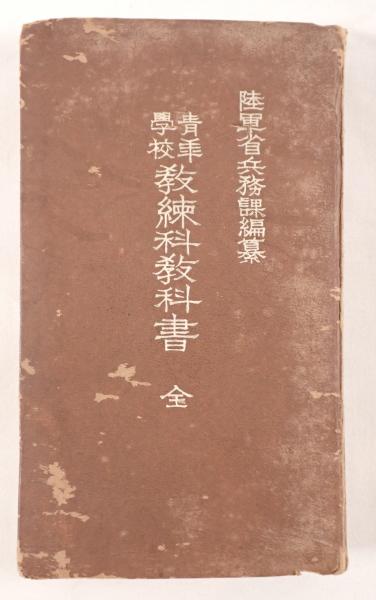 陸軍省兵務課編纂
青年學校教練科教科書 全